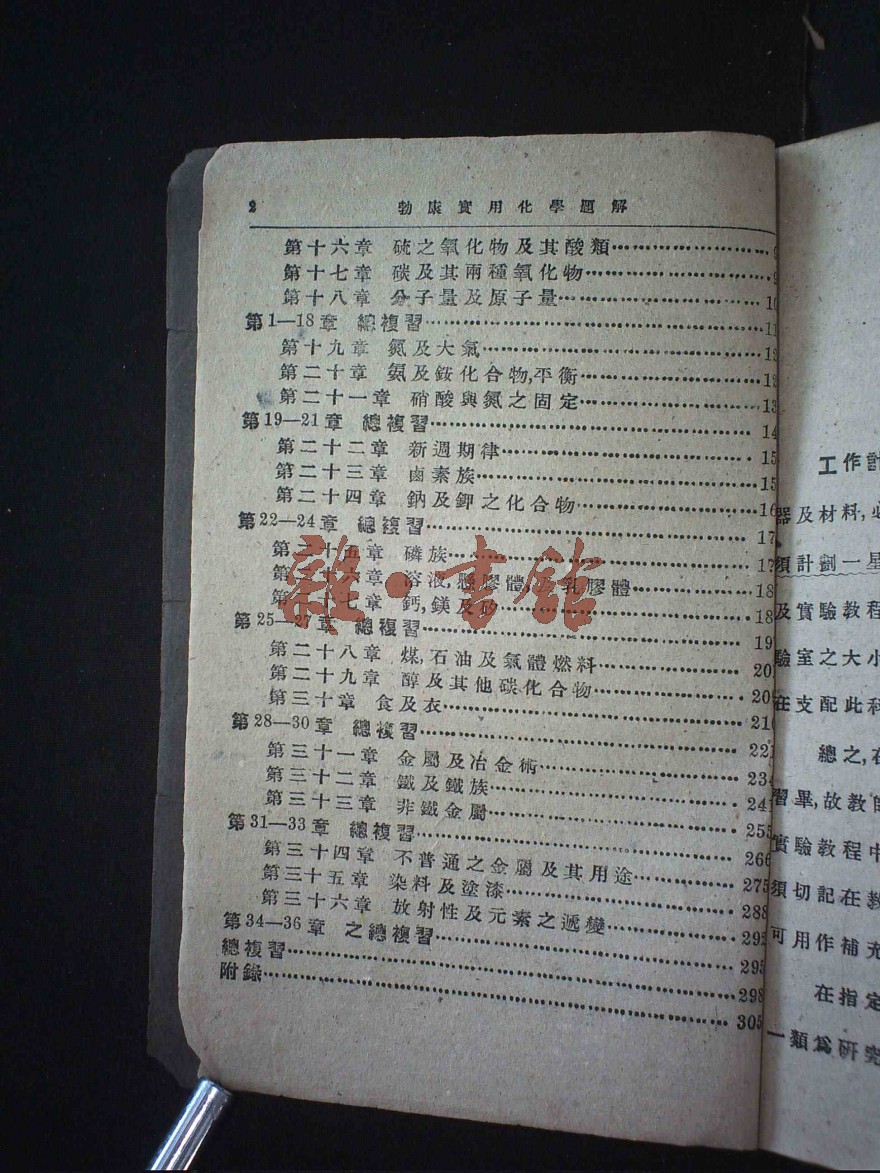 2 勃康實用化學題解
第十六章 硫之氧化物及其酸類……………………9
第十七章 碳及其兩種氧化物……………………9
第十八章 分子量及原子量……………………10
第1—18章 總複習……………………11
第十九章 氮及大氣……………………12
第二十章 氨及銨化合物,平衡……………………12
第二十一章 硝酸與氮之固定……………………13
第19—21章 總複習……………………14
第二十二章 新週期律……………………15
第二十三章 鹵素族……………………15
第二十四章 鈉及鉀之化合物……………………16
第22—24章 總複習……………………17
第二十五章 磷族……………………17
第二十六章 溶液,懸膠體,及乳膠體……………………18
第二十七章 鈣,鎂及矽……………………18
第25—27章 總複習……………………19
第二十八章 煤,石油及氣體燃料……………………20
第二十九章 醇及其他碳化合物……………………20
第三十章 食及衣……………………210
第28—30章 總複習……………………221
第三十一章 金屬及冶金術……………………234
第三十二章 鐵及鐵族……………………241
第三十三章 非鐵金屬……………………255
第31—33章 總複習……………………266
第三十四章 不普通之金屬及其用途……………………275
第三十五章 染料及塗漆……………………288
第三十六章 放射性及元素之遞變……………………292
第34—36章 之總複習……………………295
總複習……………………298
附錄……………………305
雜·書館
工作計
器及材料,必
須計劃一星
及實驗教程
驗室之大小
在支配此科
總之,在
習畢,故教師
實驗教程中
須切記在教
可用作補充
在指定
一類為研究